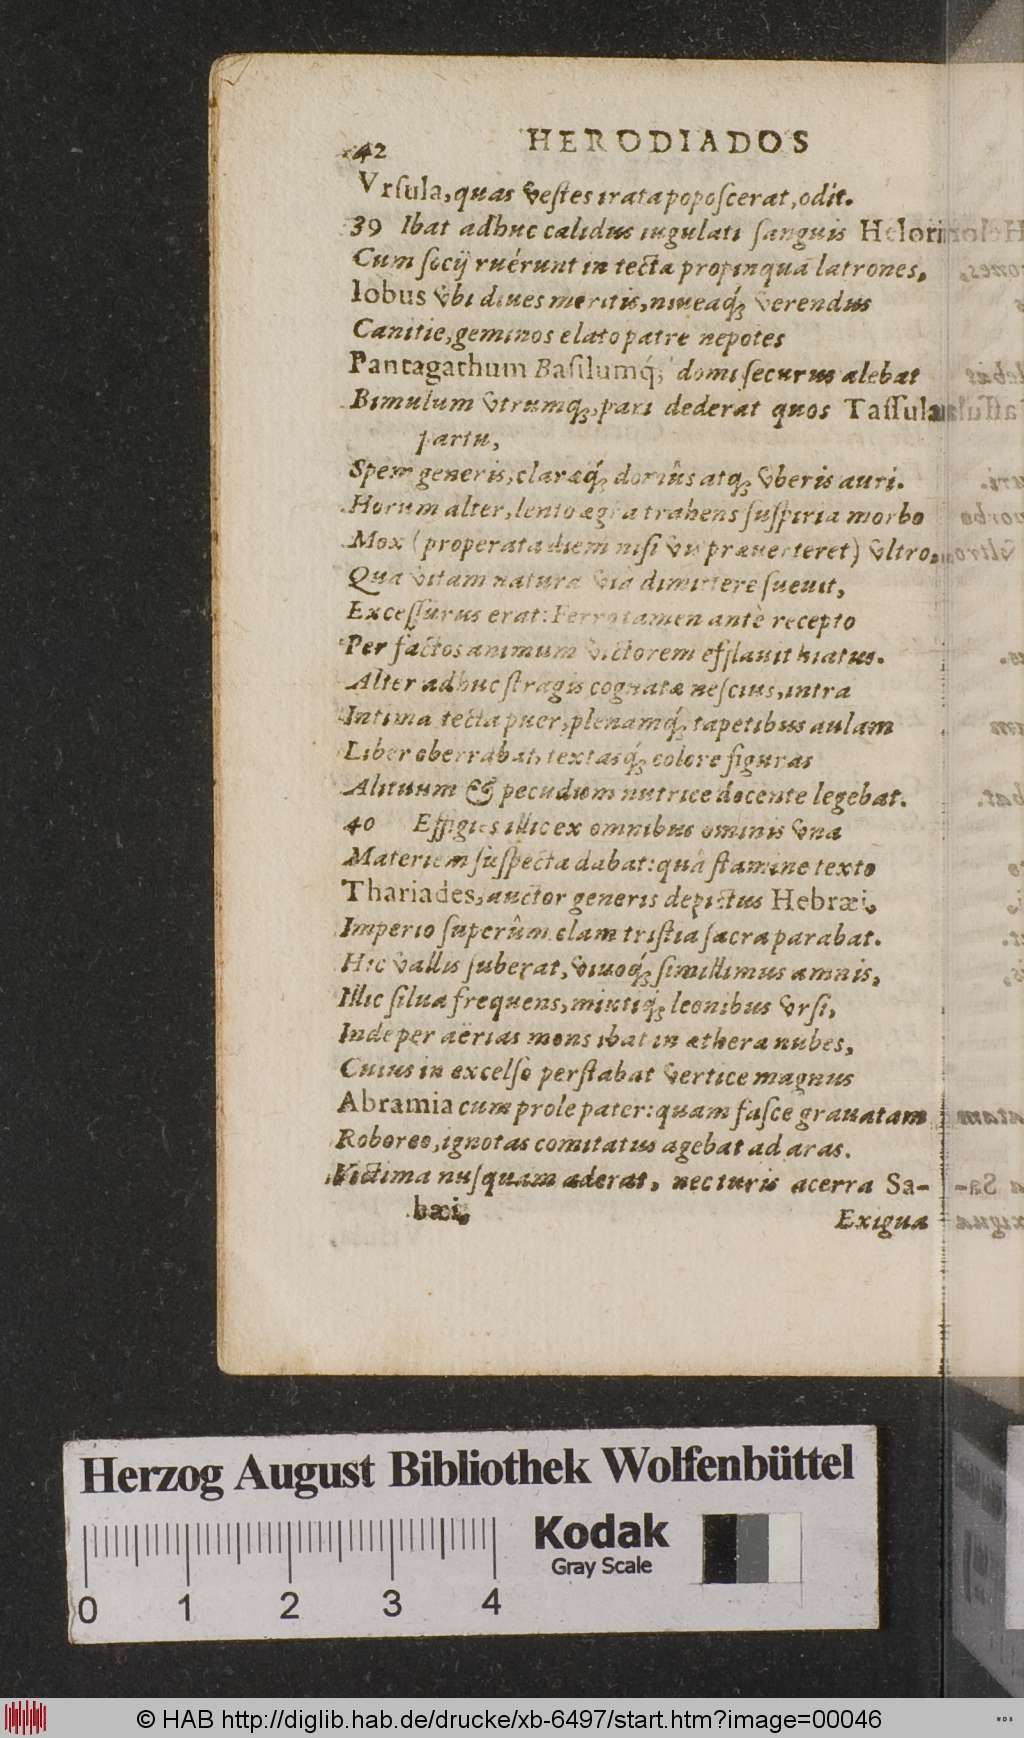 42 HERODIADOS
Vrſula, quas veſtes irata popoſcerat, odit.
39 Ibat adhuc calidus iugulati ſanguis Helori
Cum ſocij ruérunt in tecta propinqua latrones,
Iobus vbi diues meritis, niueaq́; verendus
Canitie, geminos elato patre nepotes
Pantagathum Baſilumq́; domi ſecurus alebat
Bimulum vtrumq;, pari dederat quos Taſſula
partu,
Spem generis, claræq́; domûs atq; vberis auri.
Horum alter, lento ægra trahens ſuſpiria morbo
Mox (properata diem niſi vis præuerteret) vltro,
Qua vitam natura via dimittere ſueuit,
Exceſſurus erat: Ferro tamen antè recepto
Per factos animum victorem efflauit hiatus.
Alter adhuc ſtragis cognatæ neſcius, intra
Intima tecta puer, plenamq́; tapetibus aulam
Liber oberrabat, textasq́; colore figuras
Alituum & pecudum nutrice docente legebat.
40 Effigies illic ex omnibus ominis vna
Materiem ſuſpecta dabat: quâ ſtamine texto
Thariades, auctor generis depictus Hebræi,
Imperio ſuperûm clam triſtia ſacra parabat.
Hic vallis ſuberat, viuoq́; ſimillimus amnis,
Illic ſilua frequens, mixtiq; leonibus vrſi,
Inde per aërias mons ibat in æthera nubes,
Cuius in excelſo perſtabat vertice magnus
Abramia cum prole pater: quam faſce grauatam
Roboreo, ignotas comitatus agebat ad aras.
Victima nuſquam aderat, nec turis acerra Sa-
bæi,
Exigua
Herzog August Bibliothek Wolfenbüttel
Kodak
Gray Scale
0 1 2 3 4
© HAB http://diglib.hab.de/drucke/xb-6497/start.htm?image=00046